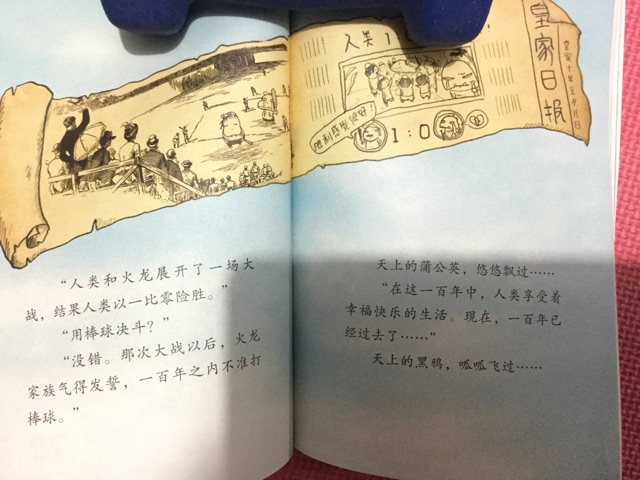 皇家日报
人类1
胜利感觉绝好!
1:0
“人类和火龙展开了一场大
战，结果人类以一比零险胜。”
“用棒球决斗？”
“没错。那次大战以后，火龙
家族气得发誓，一百年之内不准打
棒球。”
天上的蒲公英，悠悠飘过……
“在这一百年中，人类享受着
幸福快乐的生活。现在，一百年已
经过去了……”
天上的黑鸦，呱呱飞过……